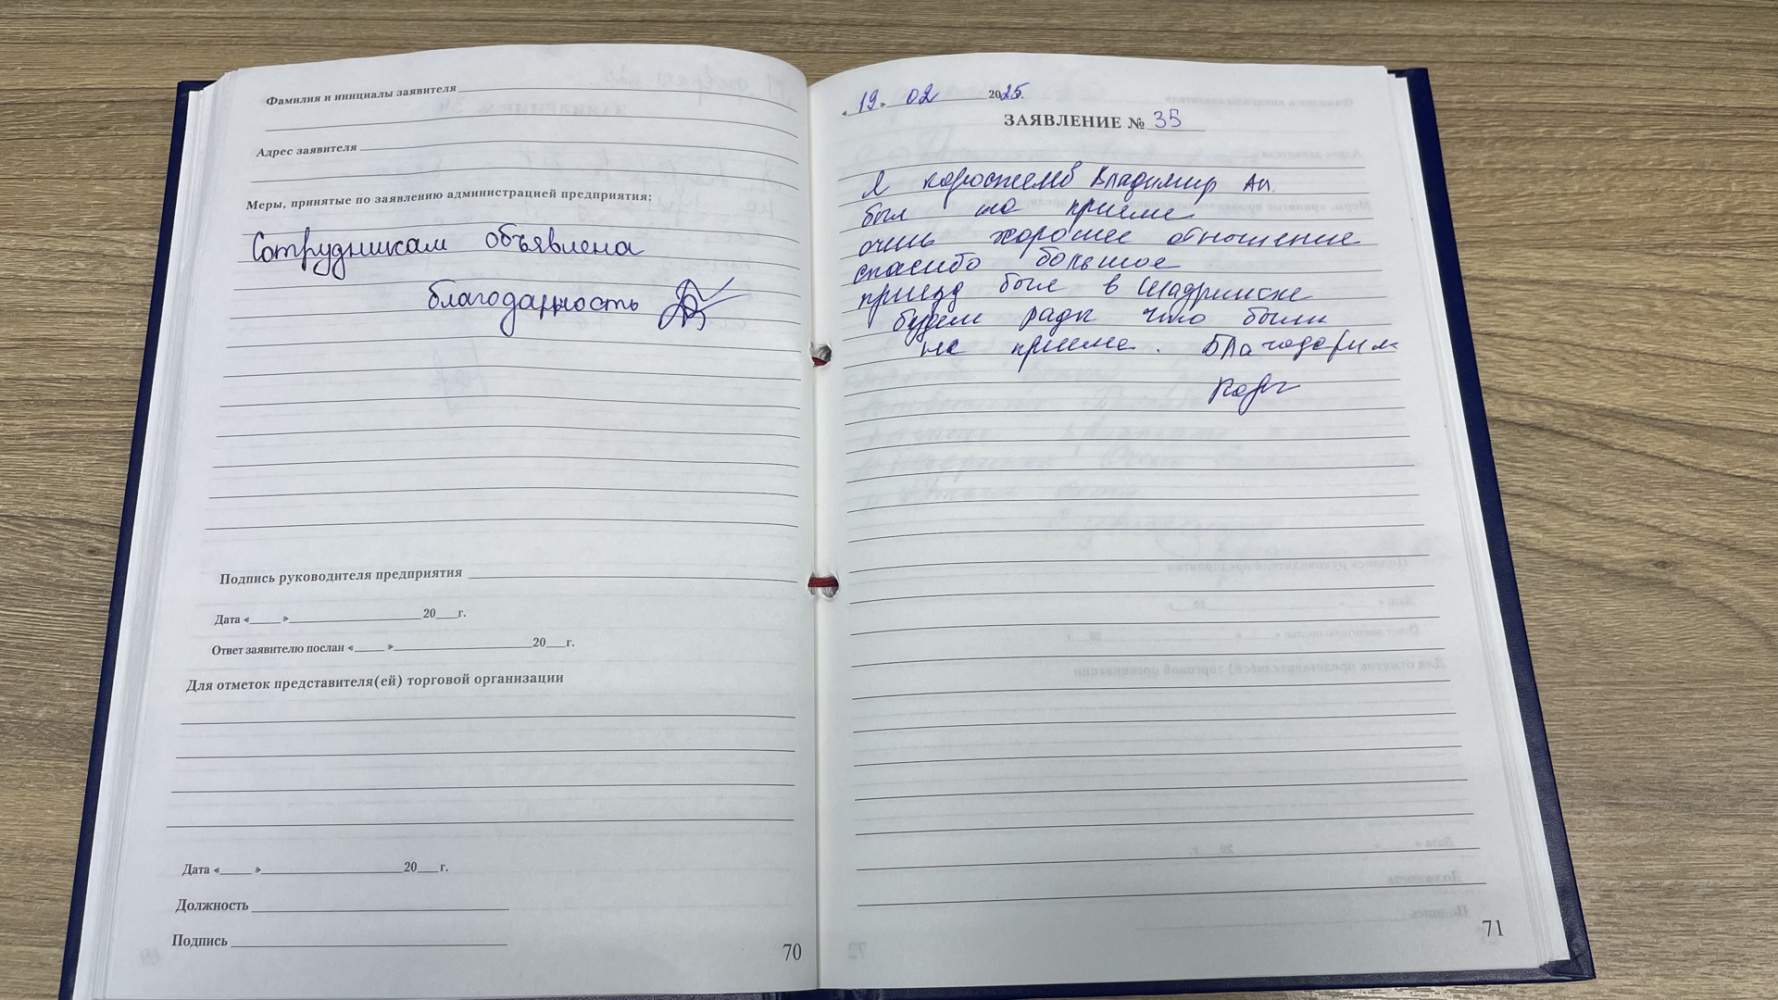 Фамилия и инициалы заявителя
Адрес заявителя
Меры, принятые по заявлению администрацией предприятия:
Сотрудникам объявлена
благодарность
Подпись руководителя предприятия
Дата «____» ____ 20__г.
Ответ заявителю послан «____» ____ 20__г.
Для отметок представителя(ей) торговой организации
Дата «____» ____ 20__г.
Должность
Подпись
70
«19» 02 2025.
ЗАЯВЛЕНИЕ № 35
Я Владимир Ан.
был на приеме
очень хорошее отношение
спасибо большое
приезд был в Шадринске
будем рады что были
на приеме. Благодарим
71